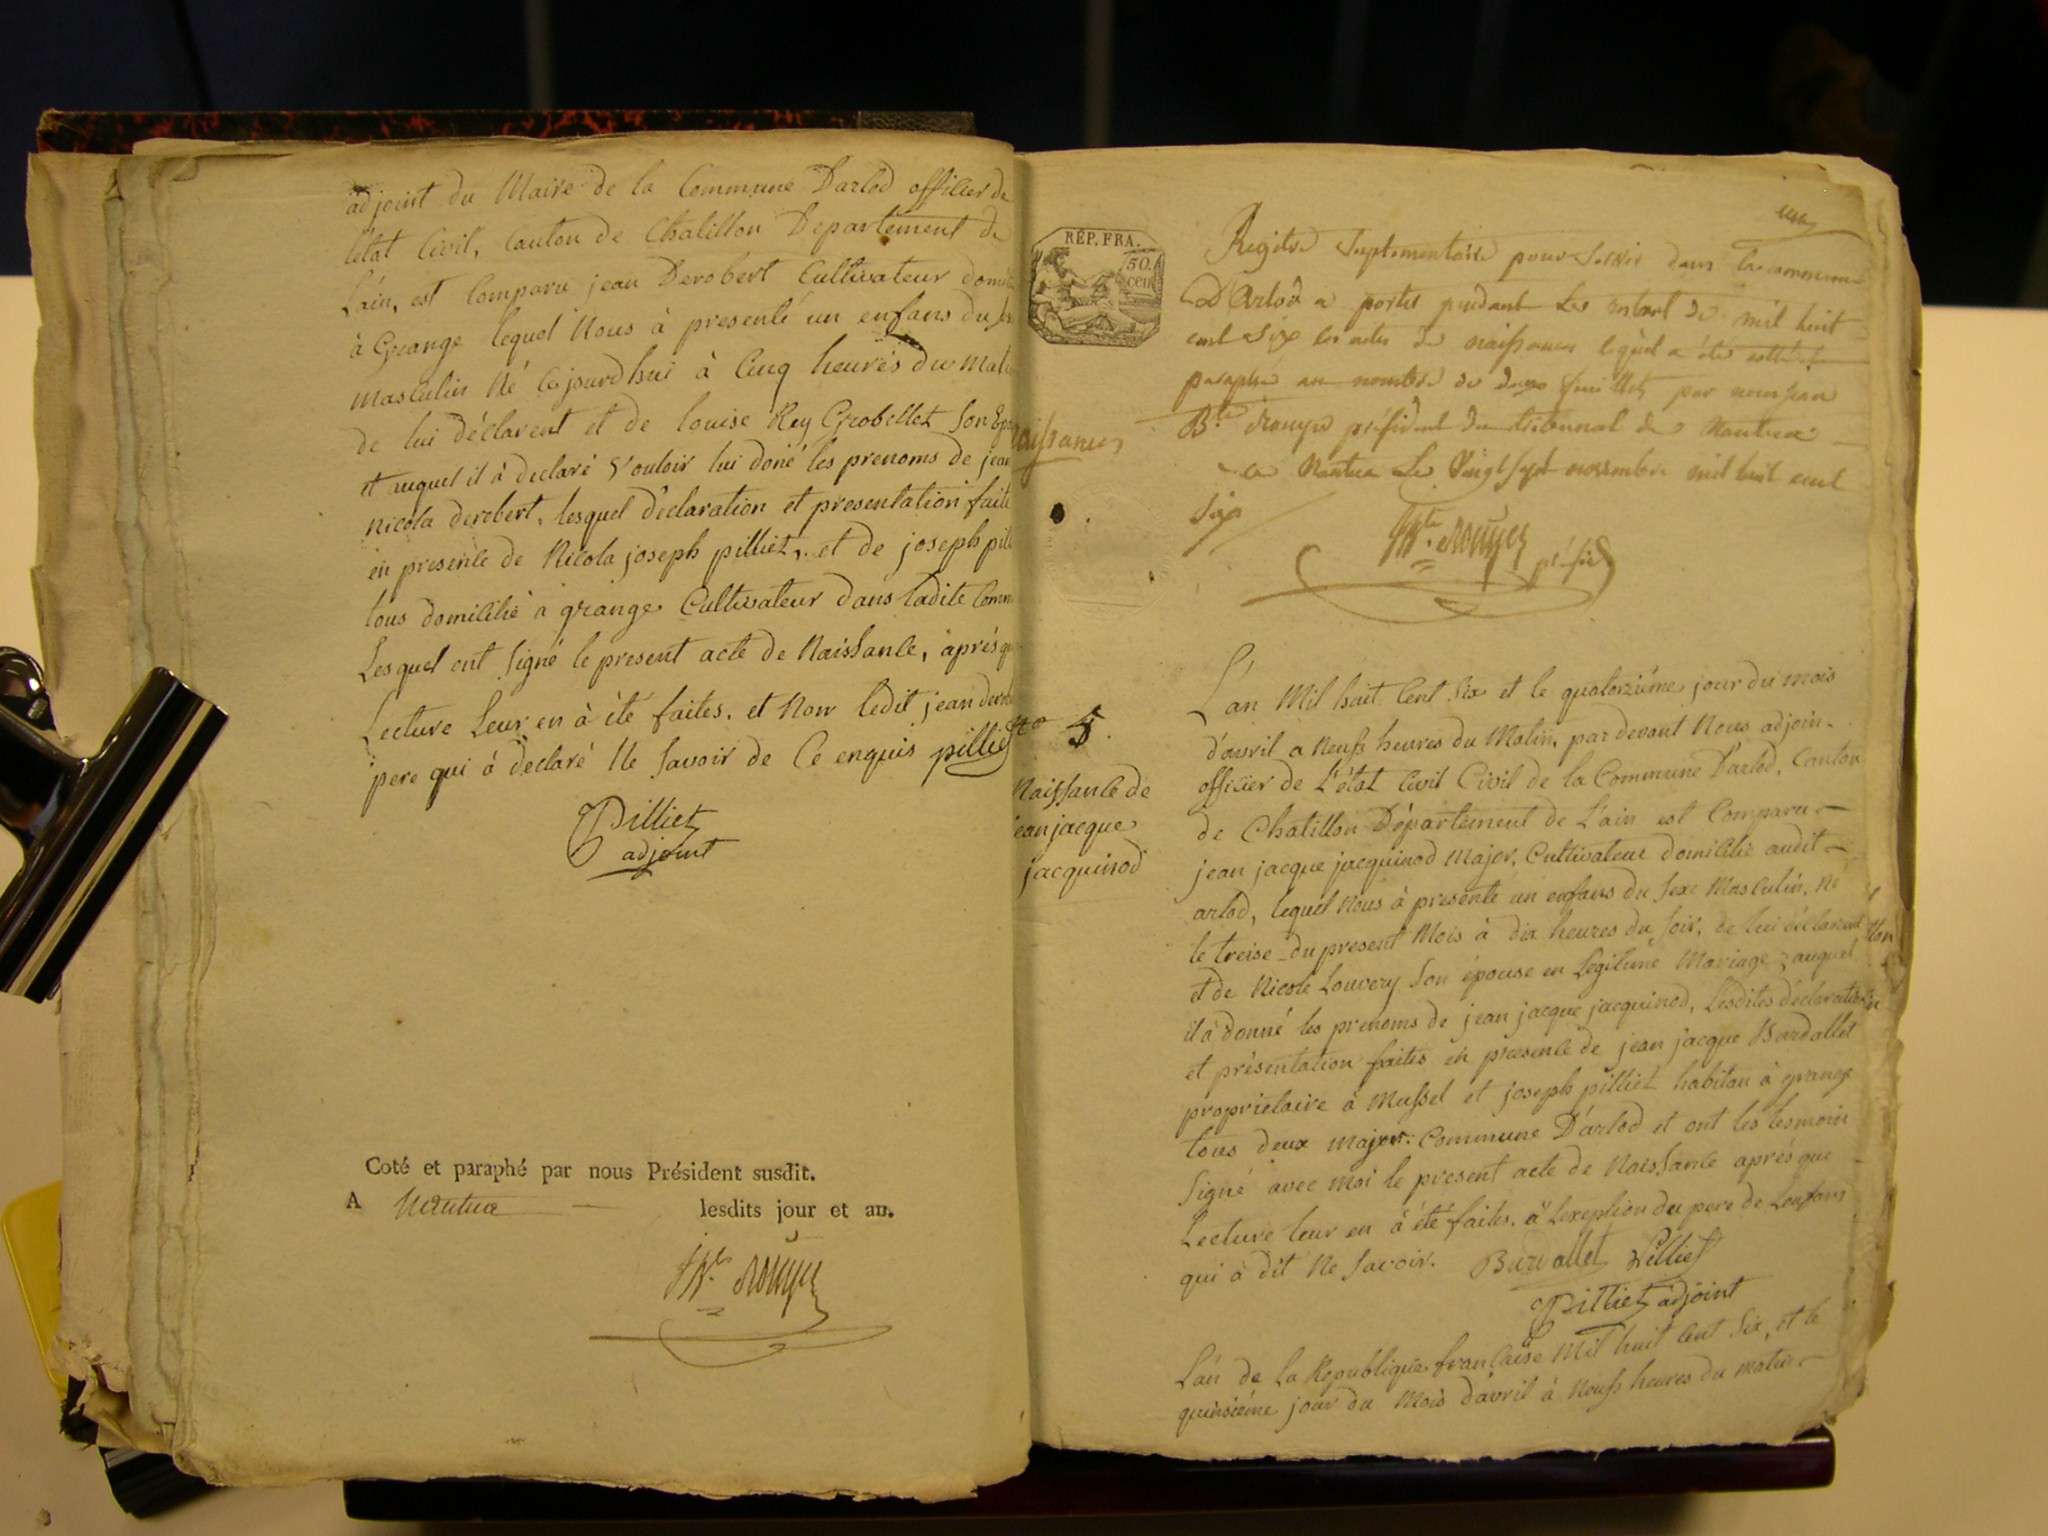 adjoint du Maire de la Commune Darlod officier de
létat Civil, Canton de Chatillon Departement de
Lain, est Comparu jean Derobert Cultivateur domi
à Grange lequel Nous à presenté un enfans du
Masculin Né Cejourdhui à Cinq heures du Mat
de lui déclarent et de louise Rey Grobellet Son Ep
et auquel il à declaré vouloir lui doné les prenoms de jean
nicola derobert, lesquel déclaration et presentation faite
en presence de Nicola joseph pilliet, et de joseph pill
tous domicilié a grange Cultivateur dans ladite Comm
Lesquel ont Signé le present acte de Naissance, après q
Lecture Leur en à été faites. et Non ledit jean
pere qui à déclaré Ne Savoir de Ce enquis pilliet
Pilliet
adjoint
Coté et paraphé par nous Président susdit.
A Nantua lesdits jour et an.
RÉP. FRA.
50.
cen
Registre Suplementaire pour Servir dans la commune
D'Arlod a porter pendant de mil huit
cent Six les actes de naissances lequel a été
paraphé au nombre de deux feuillets par nous jean
Bte président du tribunal de Nantua
a Nantua Le Vingt Sept novembre mil huit cent
Six
présid
aissances
No 5.
Naissance de
jean jacque
jacquinod
L'an Mil huit Cent Six et le quatorzième jour du mois
d'avril a Neufs heures du Matin, par devant Nous adjoin-
officier de L'état Civil Civil de la Commune Darlod, Canton
de Chatillon Département de L'ain est Comparu
jean jacque jacquinod Major, Cultivateur domicilié audit
arlod, lequel Nous à presenté un enfans du Sexe Masculin, Né
le treise du present Mois à dix heures du Soir, de lui déclarent
et de Nicole Louvery Son épouse en Legitime Mariage, auquel
il à donné les prenoms de jean jacque jacquinod, Lesdites déclaration
et présentation faites en presence de jean jacque Burdallet
proprietaire à Mussel et joseph pilliet habitan à grange
tous deux Major. Commune D'arlod et ont les tesmoin
Signé avec moi le present acte de Naissance après que
Lecture leur en à été faites. à Lexeption du pere de Lenfans
qui à dit Ne Savoir. Burdallet Pilliet
Pilliet adjoint
L'an de La Republique française Mil huit Cent Six, et le
quinsième jour du Mois d'avril à Neufs heures du matin